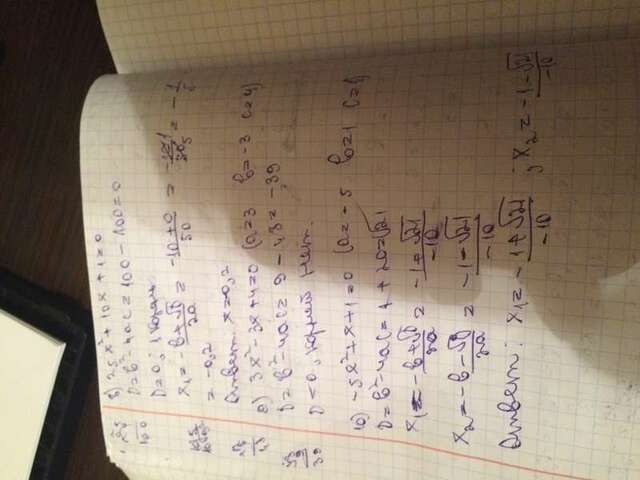 в) 25x²+10x+1=0
D=в²-4ac=100-100=0
D=0; 1 корень
x₁=-в+√D/2a=-10+0/50=-=-1/5
=-0,2
Ответ: x=0,2
3x²-3x+4=0 (a=3 в=-3 c=4)
D=в²-4ac=9-48=-39
D<0, корней нет.
-5x²+x+1=0 (a=-5 в=1 c=1)
D=в²-4ac=1+20=√21
x₁=-в+√D/2a=-1+√21/-10
x₂=-в-√D/2a=-1-√21/-10
Ответ: x₁=-1+√21/-10; x₂=-1-√21/-10